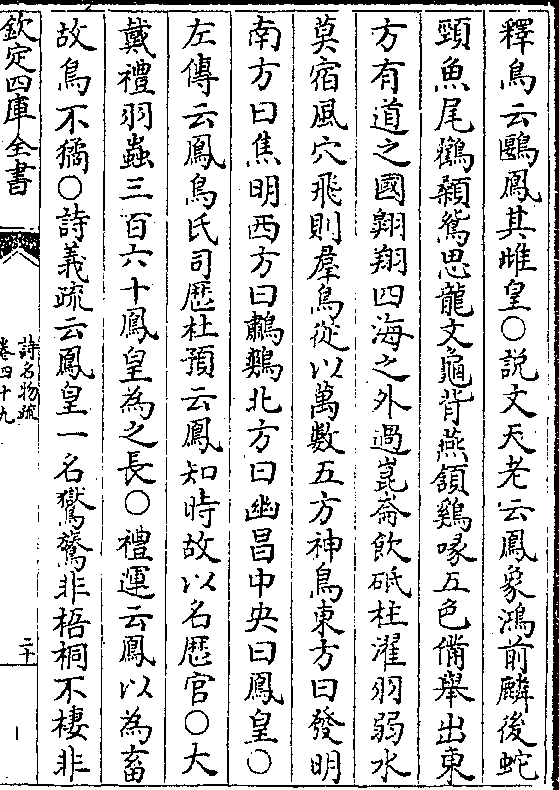 釋鳥云鶠鳳其雌皇○說文天老云鳳象鴻前麟後蛇
頸魚尾鸛顙鴛思龍文龜背燕頷雞喙五色備舉出東
方有道之國翺翔四海之外過崑崙飲砥柱濯羽弱水
莫宿風穴飛則羣鳥從以萬數五方神鳥東方曰發明
南方曰焦明西方曰鷫鷞北方曰幽昌中央曰鳳皇○
左傳云鳳鳥氏司歷杜預云鳳知時故以名歷官○大
戴禮羽蟲三百六十鳳皇為之長○禮運云鳳以為畜
故鳥不獝○詩義疏云鳳皇一名鸑鷟非梧桐不棲非
欽定四庫全書
詩名物疏
卷四十九
二十